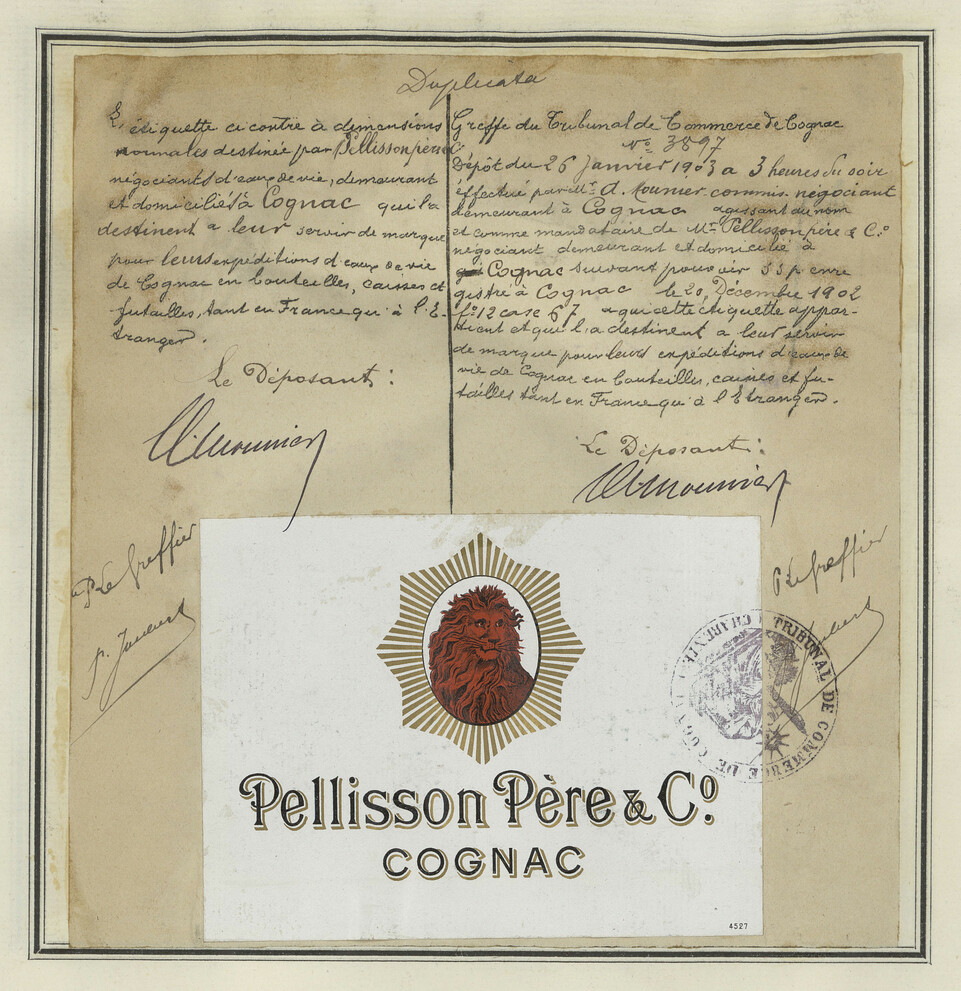 Duplicata
L'étiquette ci contre à dimensions
normales destinée par Pellisson père & Cº
négociants d'eaux de vie, demeurant
et domiciliés à Cognac qui la
destinent a leur servir de marque
pour leurs expéditions d'eaux de vie
de Cognac en bouteilles, caisses et
futailles, tant en France qu'à l'É-
tranger.
Le Déposant :
AMounier
Pr Le Greffier
Greffe du Tribunal de Commerce de Cognac
Nº 3897
Dépôt du 26 Janvier 1903 a 3 heures du soir
éffectué par Mr A. Mounier commis négociant
demeurant à Cognac agissant au nom
et comme mandataire de Mrs Pellisson père & Cº
négociant demeurant et domicilié à
Cognac suivant pouvoir s s p enre
gistré à Cognac le 20, Décembre 1902
fº 12 case 67 a qui cette étiquette appar-
tient et qui la destinent a leur servir
de marque pour leurs expéditions d'eaux de
vie de Cognac en bouteilles, caisses et fu-
tailles tant en France qu'à l'Etranger.
Le Déposant :
AMounier
Pr Le Greffier
TRIBUNAL DE COMMERCE DE COGNAC CHARENTE
Pellisson Père & Cº
COGNAC
4527